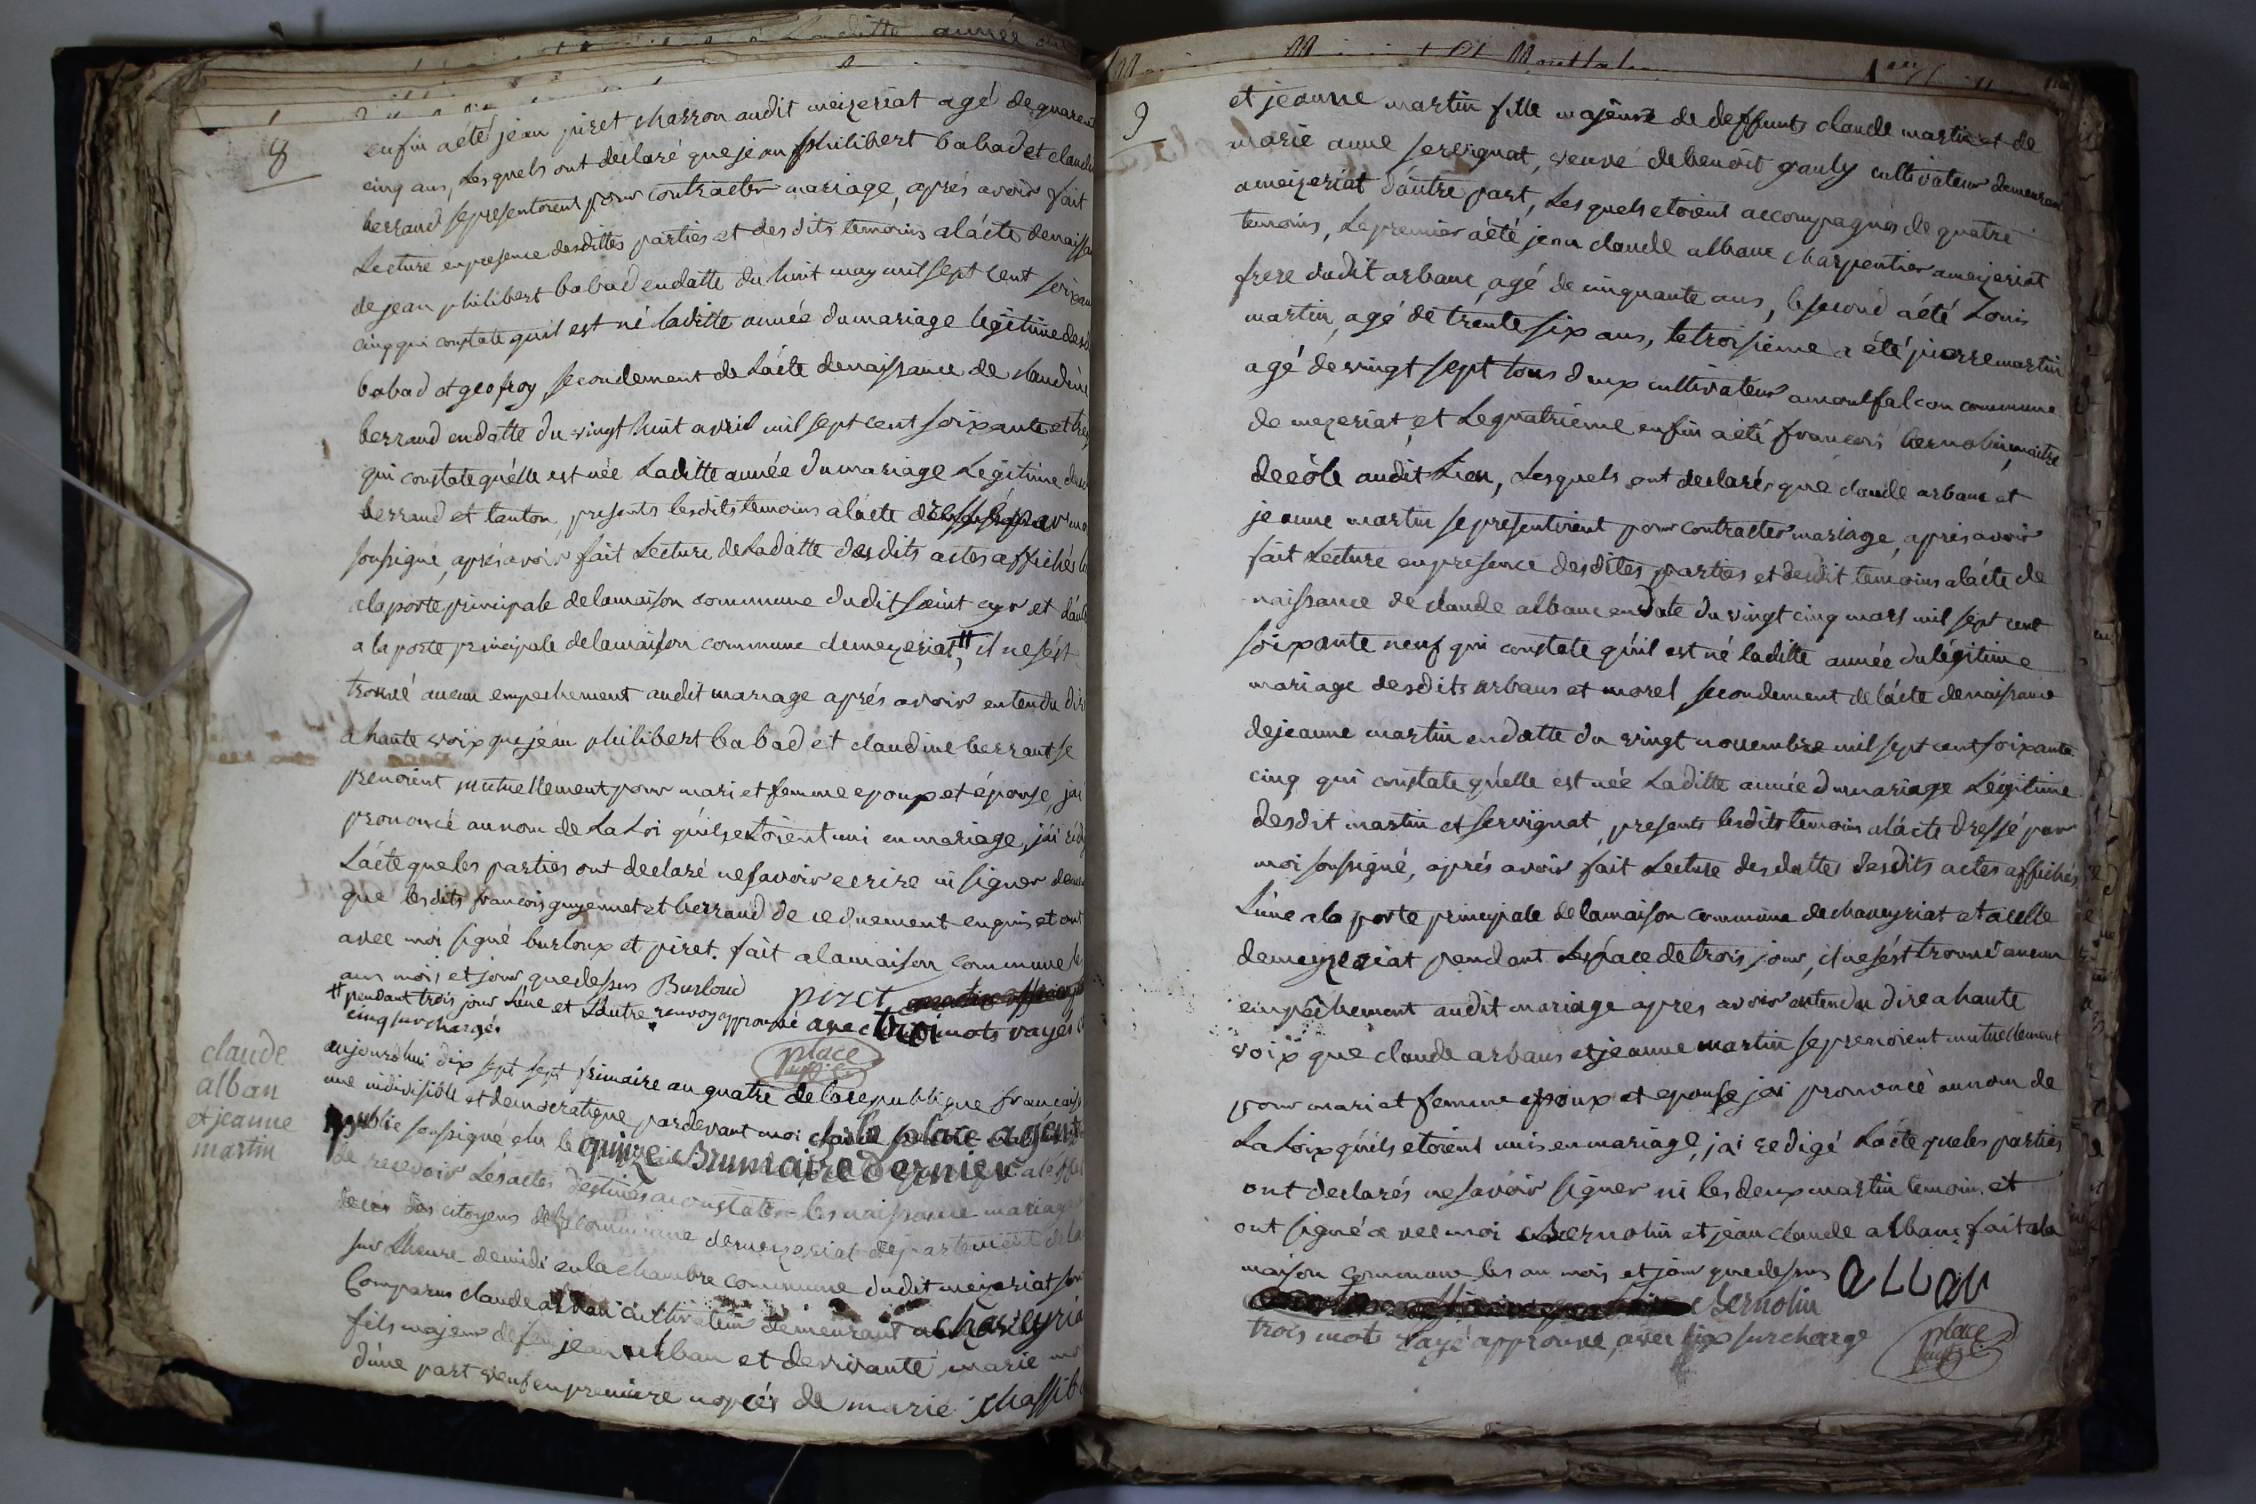 8
enfin aété jean piret charron audit meizeriat agé de quarent
cinq ans, Lesquels ont declaré que jean philibert babad et claudi
berraud sepresentoient pour contracter mariage, aprés avoir fait
Lecture enpresence desdittes parties et des dits temoins alácte denaissa
de jean philibert babad endatte du huit may mil sept cent soixan
cinq qui constate quil est né laditte année dumariage legitime desd
babad et geofroy, secondement de Lácte denaissance de claudine
berraud endatte du vingt huit avril mil sept cent soixante et tre
qui constate quélle est née Laditte année dumariage Legitime
berraud et tanton, presents lesdits temoins alácte dressé par mo
soussigné, aprés avoir fait Lecture de Ladatte desdits actes affichés
alaporte principale delamaison commune dudit saint cyr et
a la porte principale delamaison commune demezériat, # il nesést
trouvé aucun empechement audit mariage aprés avoir entendu dir
ahaute voix que jéan philibert babad et claudine berraut se
prenoient mutuellement pour mari et femme epoux et épouse, jái
prononcé aunom de La Loi quils etoient uni en mariage, jái
Lácte queles parties ont declaré nesavoir ecrire ni signer
que lesdits francois guyennet et berraud de ce duement enquis et ont
avec moi signé burloux et piret. fait alamaison commune
ans mois et jour quedessus Burloud piret
# pendant trois jour Lúne et Láutre renvoy approuvé avec trois mots rayés
cinq surchargés
place
claude
alban
et jeanne
martin
aujourdhui dix sept frimaire an quatre de la republique francais
une indivisible et democratique pardevant moi claude place agent
publie soussigné elu le quinze Brumaire dernier
de recevoir Lesactes destinés aconstater les naissance mariage
decés des citoyens dela commune demezeriat departement de la
sur Lheure demidi enla chambre commune dudit meizeriat
Comparus claude alban cultivateur demeurant a chaveyria
fils majeur defeu jean urban et devivante marie
dúne part veuf en premiere nopces de marie chassib
9
et jeanne martin fille majeure de deffunts claude martin et de
marie anne servignat, veuve de benoit pauly cultivateur demeurant
ameizeriat dáutre part, Lesquels etoient accompagnés de quatre
temoins, Lepremier aété jean claude albanc charpentier ameizeriat
frere dudit arbanc, agé de cinquante ans, lesecond aété Louis
martin, agé de trente six ans, letroisieme a été pierre martin
agé devingt sept tous deux cultivateur amontfalcon commune
de mezeriat, et Lequatrieme enfin aété francois bernolin, maitre
decóle audit Lieu, Lesquels ont declarés que claude arbanc et
jeanne martin sepresentoient pour contracter mariage, aprés avoir
fait Lecture en presence desdites parties et desdit temoins alácte de
naissance de claude albanc endate du vingt cinq mars mil sept cent
soixante neuf qui constate quíl est né laditte année du légitime
mariage desdits arbans et morel, secondement delácte denaissance
dejeanne martin endatte du vingt novembre mil sept cent soixante
cinq qui constate quélle est née Laditte année dumariage Légitime
desdit martin et servignat, presents lesdits temoins alácte dressé par
moi soussigné, aprés avoir fait Lecture des dattes desdits actes affichés
Lúne ala porte principale delamaison commune dechaveyriat et acelle
demeyzeriat pendant Léspace detrois jour, il nesést trouvé aucun
empéchement audit mariage apres avoir entendu dire ahaute
voix que claude arbans et jeanne martin seprenoient mutuellement
pour mari et femme époux et epouse jai prononcé aunom de
La Loix quíls etoient unis en mariage, jai redigé Lácte queles parties
ont declarés nesavoir signer ni les deux martin temoin. et
ont signé avec moi Bernolin et jean claude albanc fait ala
maison commune les an mois et jour quedessus alban
Bernolin
trois mots rayé approuvé avec six surcharge
place